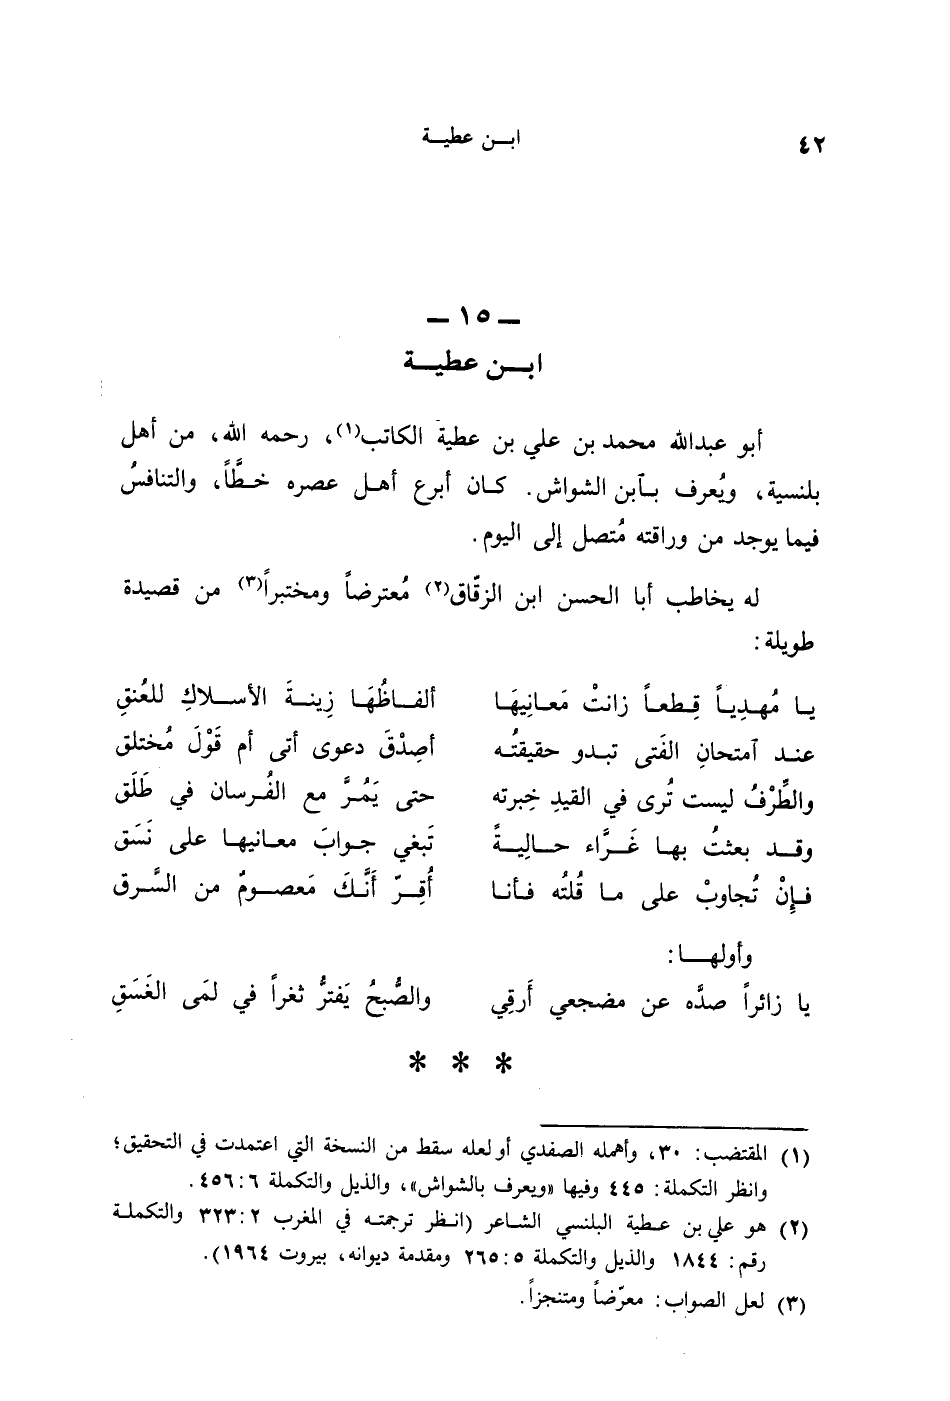 ٤٢
ابـن عطيـة
ـ ١٥ ـ
ابـن عطيـة
أبو عبدالله محمد بن علي بن عطية الكاتب(١)، رحمه الله، من أهل
بلنسية، ويُعرف بـآبن الشواش. كـان أبرع أهـل عصره خـطَّاً، والتنافسُ
فيما يوجد من وراقته مُتصل إلى اليوم.
له يخاطب أبا الحسن ابن الزقّاق(٢) مُعترضاً ومختبراً(٣) من قصيدة
طويلة:
يـا مُهـدِيـاً قِـطعـاً زانتْ مَعـانِيهَـا ألفـاظُهَـا زِينـةَ الأسـلاكِ للعُنقِ
عنـد آمتحانِ الفَتى تبـدو حقيقتُـه أصِدْقَ دعوى أتى أم قَوْلَ مُختلقِ
والطِّرْفُ ليست تُرى في القيدِ خِبرته حتى يَمُـرَّ مع الفُـرسان في طَلَقِ
وقـد بعثتُ بهـا غَـرَّاء حـالِيـةً تَبغي جـوابَ معـانيهـا على نَسَقِ
فـإنْ تُجاوبْ على مـا قُلتُه فـأنـا أُقِـرّ أَنَّـكَ مَعصـومٌ من السَّرق
وأولهـا:
يا زائراً صدَّه عن مضجعي أَرقِي والصُّبحُ يَفترُّ ثغراً في لمَى الغَسَقِ
* * *
(١) المقتضب: ٣٠، وأهمله الصفدي أو لعله سقط من النسخة التي اعتمدت في التحقيق؛
وانظر التكملة: ٤٤٥ وفيها «ويعرف بالشواش»، والذيل والتكملة ٦:٤٥٦.
(٢) هو علي بن عـطية البلنسي الشـاعر (انـظر ترجمتـه في المغرب ٢:٣٢٣ والتكملـة
رقم: ١٨٤٤ والذيل والتكملة ٥:٢٦٥ ومقدمة ديوانه، بيروت ١٩٦٤).
(٣) لعل الصواب: معرّضاً ومتنجزاً.